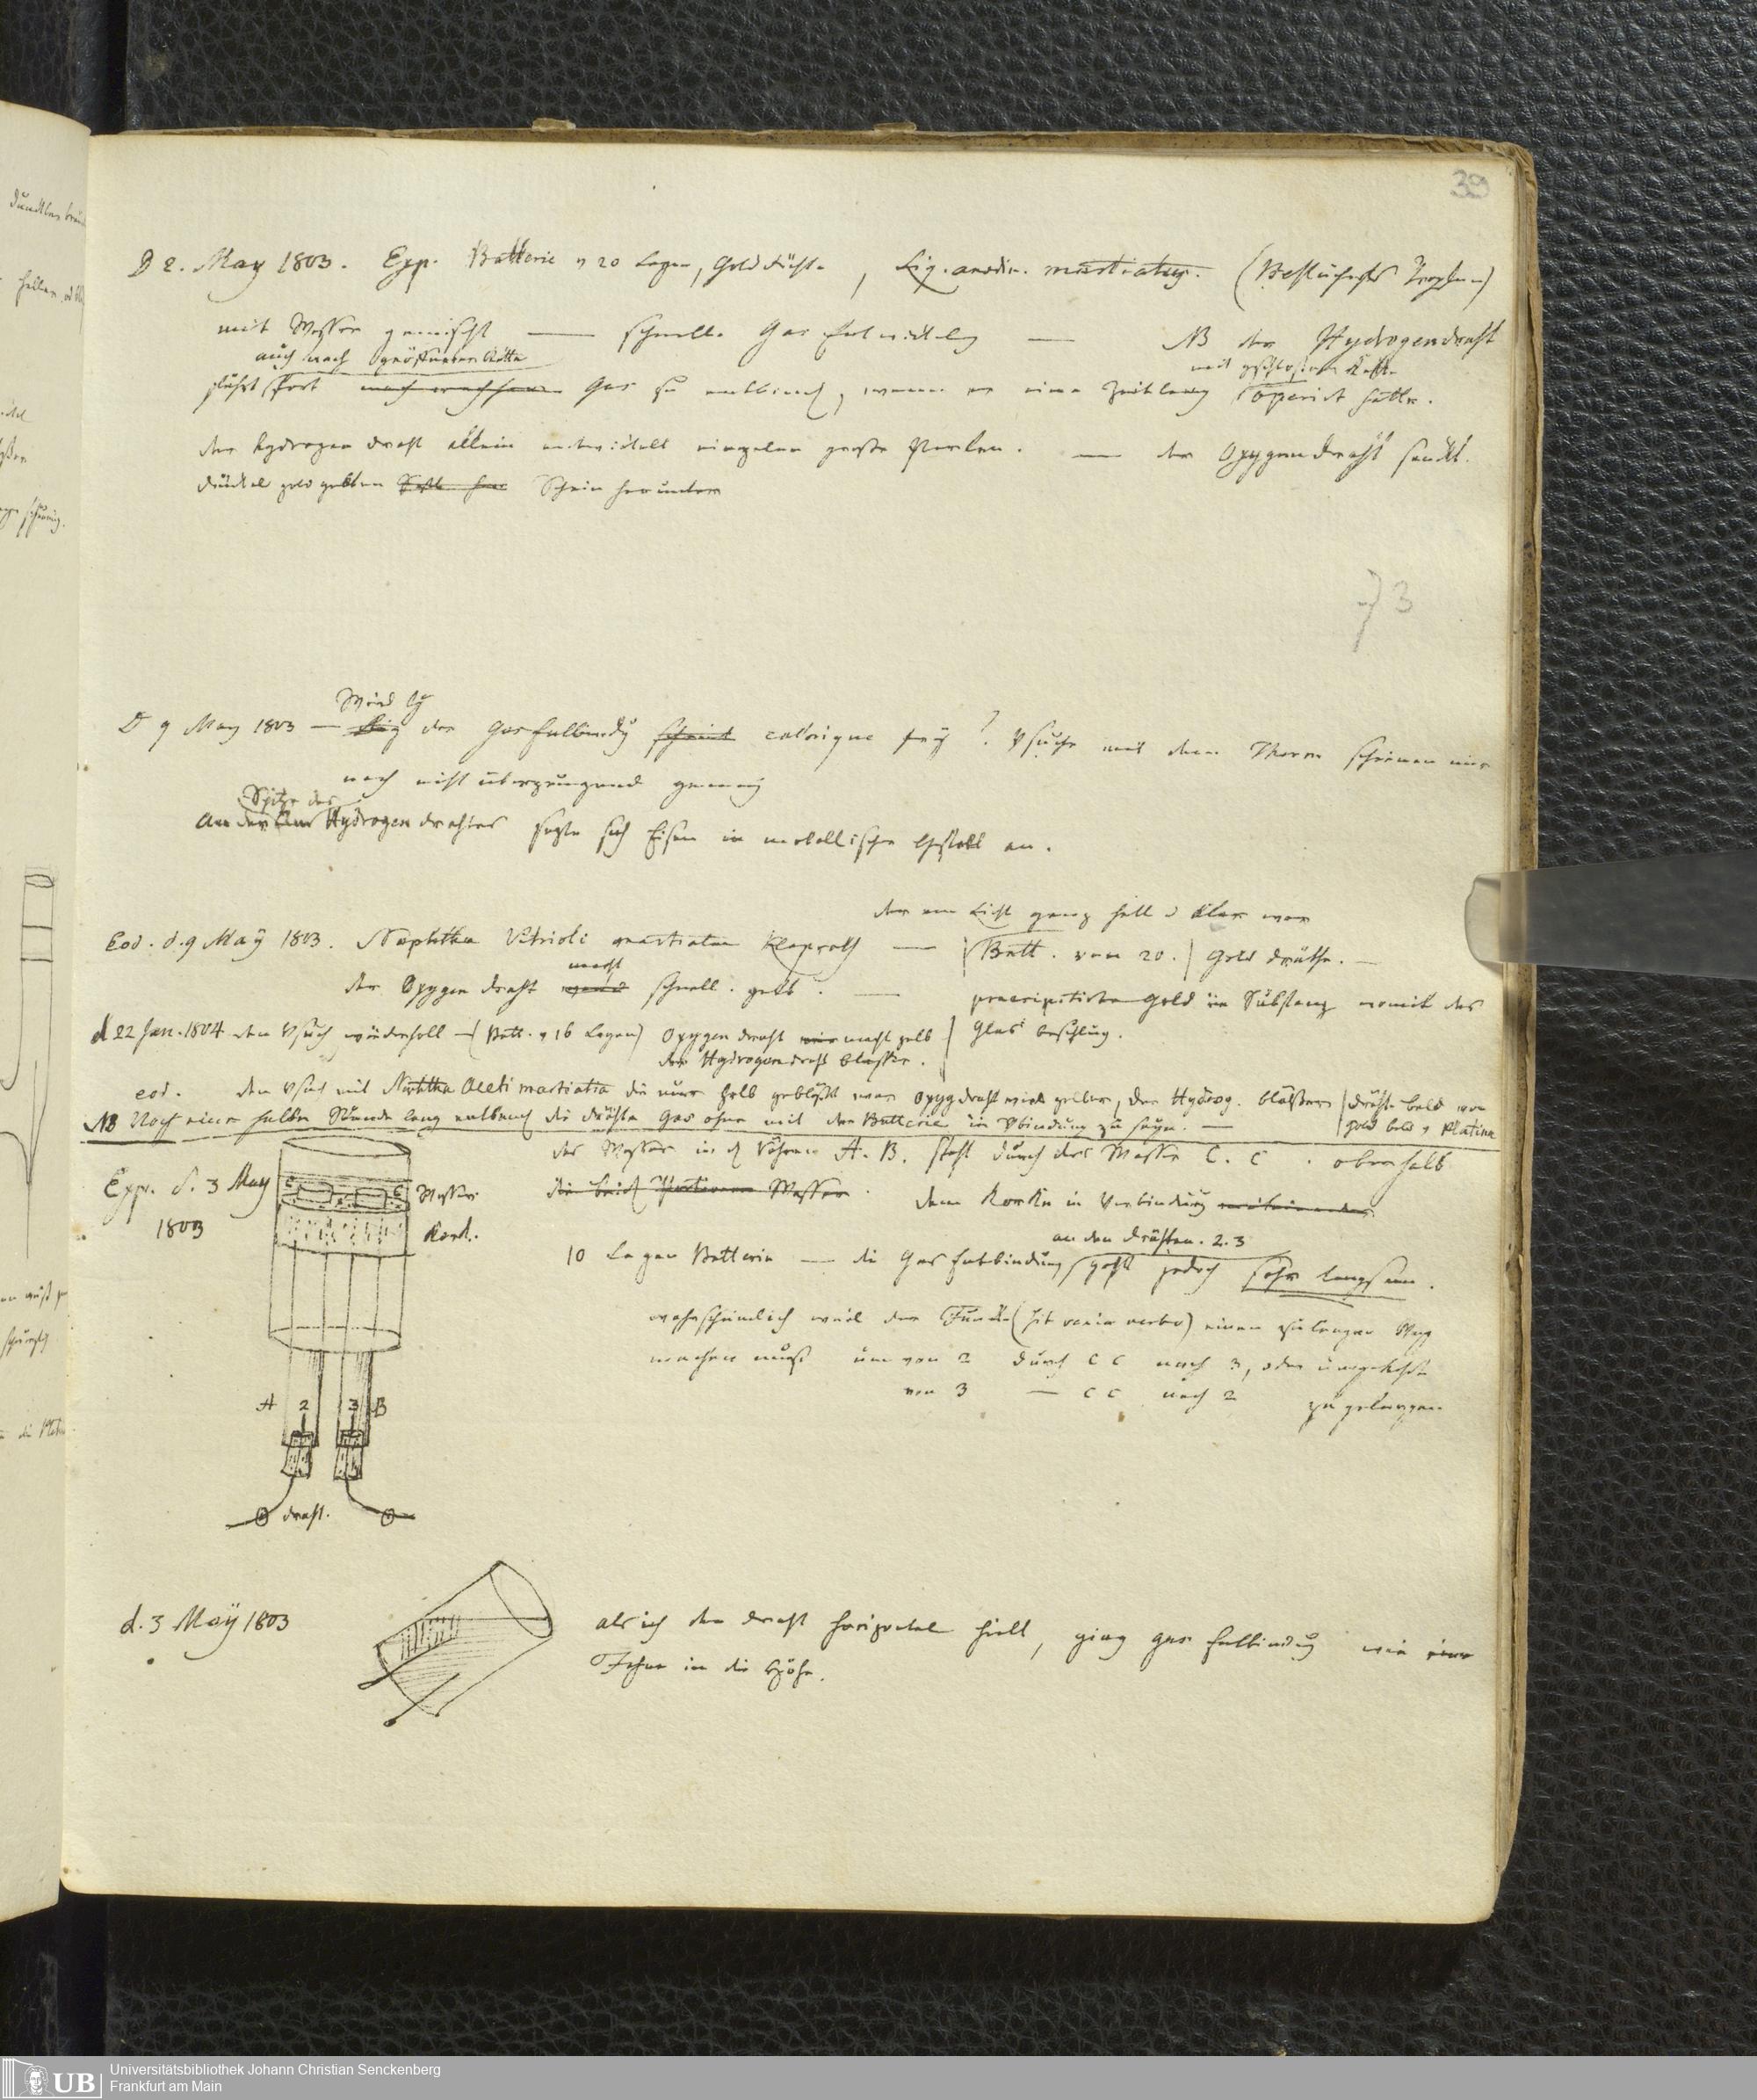 39
D 2. May 1803. Exp. Batterie v 20 Lagen, Golddrähte, Liq. anodin. martiatus. (Bestuchefs Tropfen)
mit Wasser gemischt — schnelle Gas Entwickelg — NB der Hydrogendraht
auch nach geöffneter Kette
mit geschlossener Kette
fährt fort Gas zu entbind, wenn er eine Zeitlang operirt hatte.
der Hydrogen draht allein entwickelt einzelne große Perlen. — der Oxygendraht senkt
dunkel gold gelben Schein herunter
73
Wird by
D 9 May 1803 — der Gasentbindg calorique frey? Vsuche mit dem Therm schienen mir
noch nicht überzeugend genug
Spitze des
An der Hydrogen drahtes setzte sich Eisen in metallischer Gestalt an.
der am Licht ganz hell u klar war
Eod. d. 9 Maÿ 1803. Naphtha Vitrioli martiata Klaproth — Batt. von 20. Gold dräthe. —
macht
der Oxygen draht schnell gelb. — praecipitirte Gold in Substanz womit das
d 22 Jan. 1804 den Vsuch wiederholt — (Batt. v 16 Lagen) Oxygen draht macht gelb Glas beschlug.
der Hydrogendraht blasser.
eod. den Vsuch mit Naphtha Aceti martiata die nur halb gebläßt war Oxygdraht wird gelber, der Hydrog. bläßer dräthe bald von
NB Noch eine halbe Stunde lang entband die drähte Gas ohne mit der Batterie in Vbindung zu seyn. — Gold bald v Platina
das Wasser in d Röhren A. B. steht durch das Wasser C. C. oberhalb
Exp. d. 3 May
Wasser
die beid Portionen Wasser. dem Korke in Verbindung miteinander
1803
Kork.
an den Drähten. 2. 3
10 Lagen Batterie — die Gas Entbindung geht jedoch sehr langsam.
wahrscheinlich weil der Funke (sit venia verbo) einen zu langen Weg
machen muß um von 2 durch C C nach 3, oder umgekehrt
von 3 — C C nach 2 zu gelangen
A 2 3 B
draht.
d. 3 Maÿ 1803
als ich den draht horizontal hielt, ging Gas Entbindg wie eine
Fahne in die Höhe.
UB Universitätsbibliothek Johann Christian Senckenberg
Frankfurt am Main